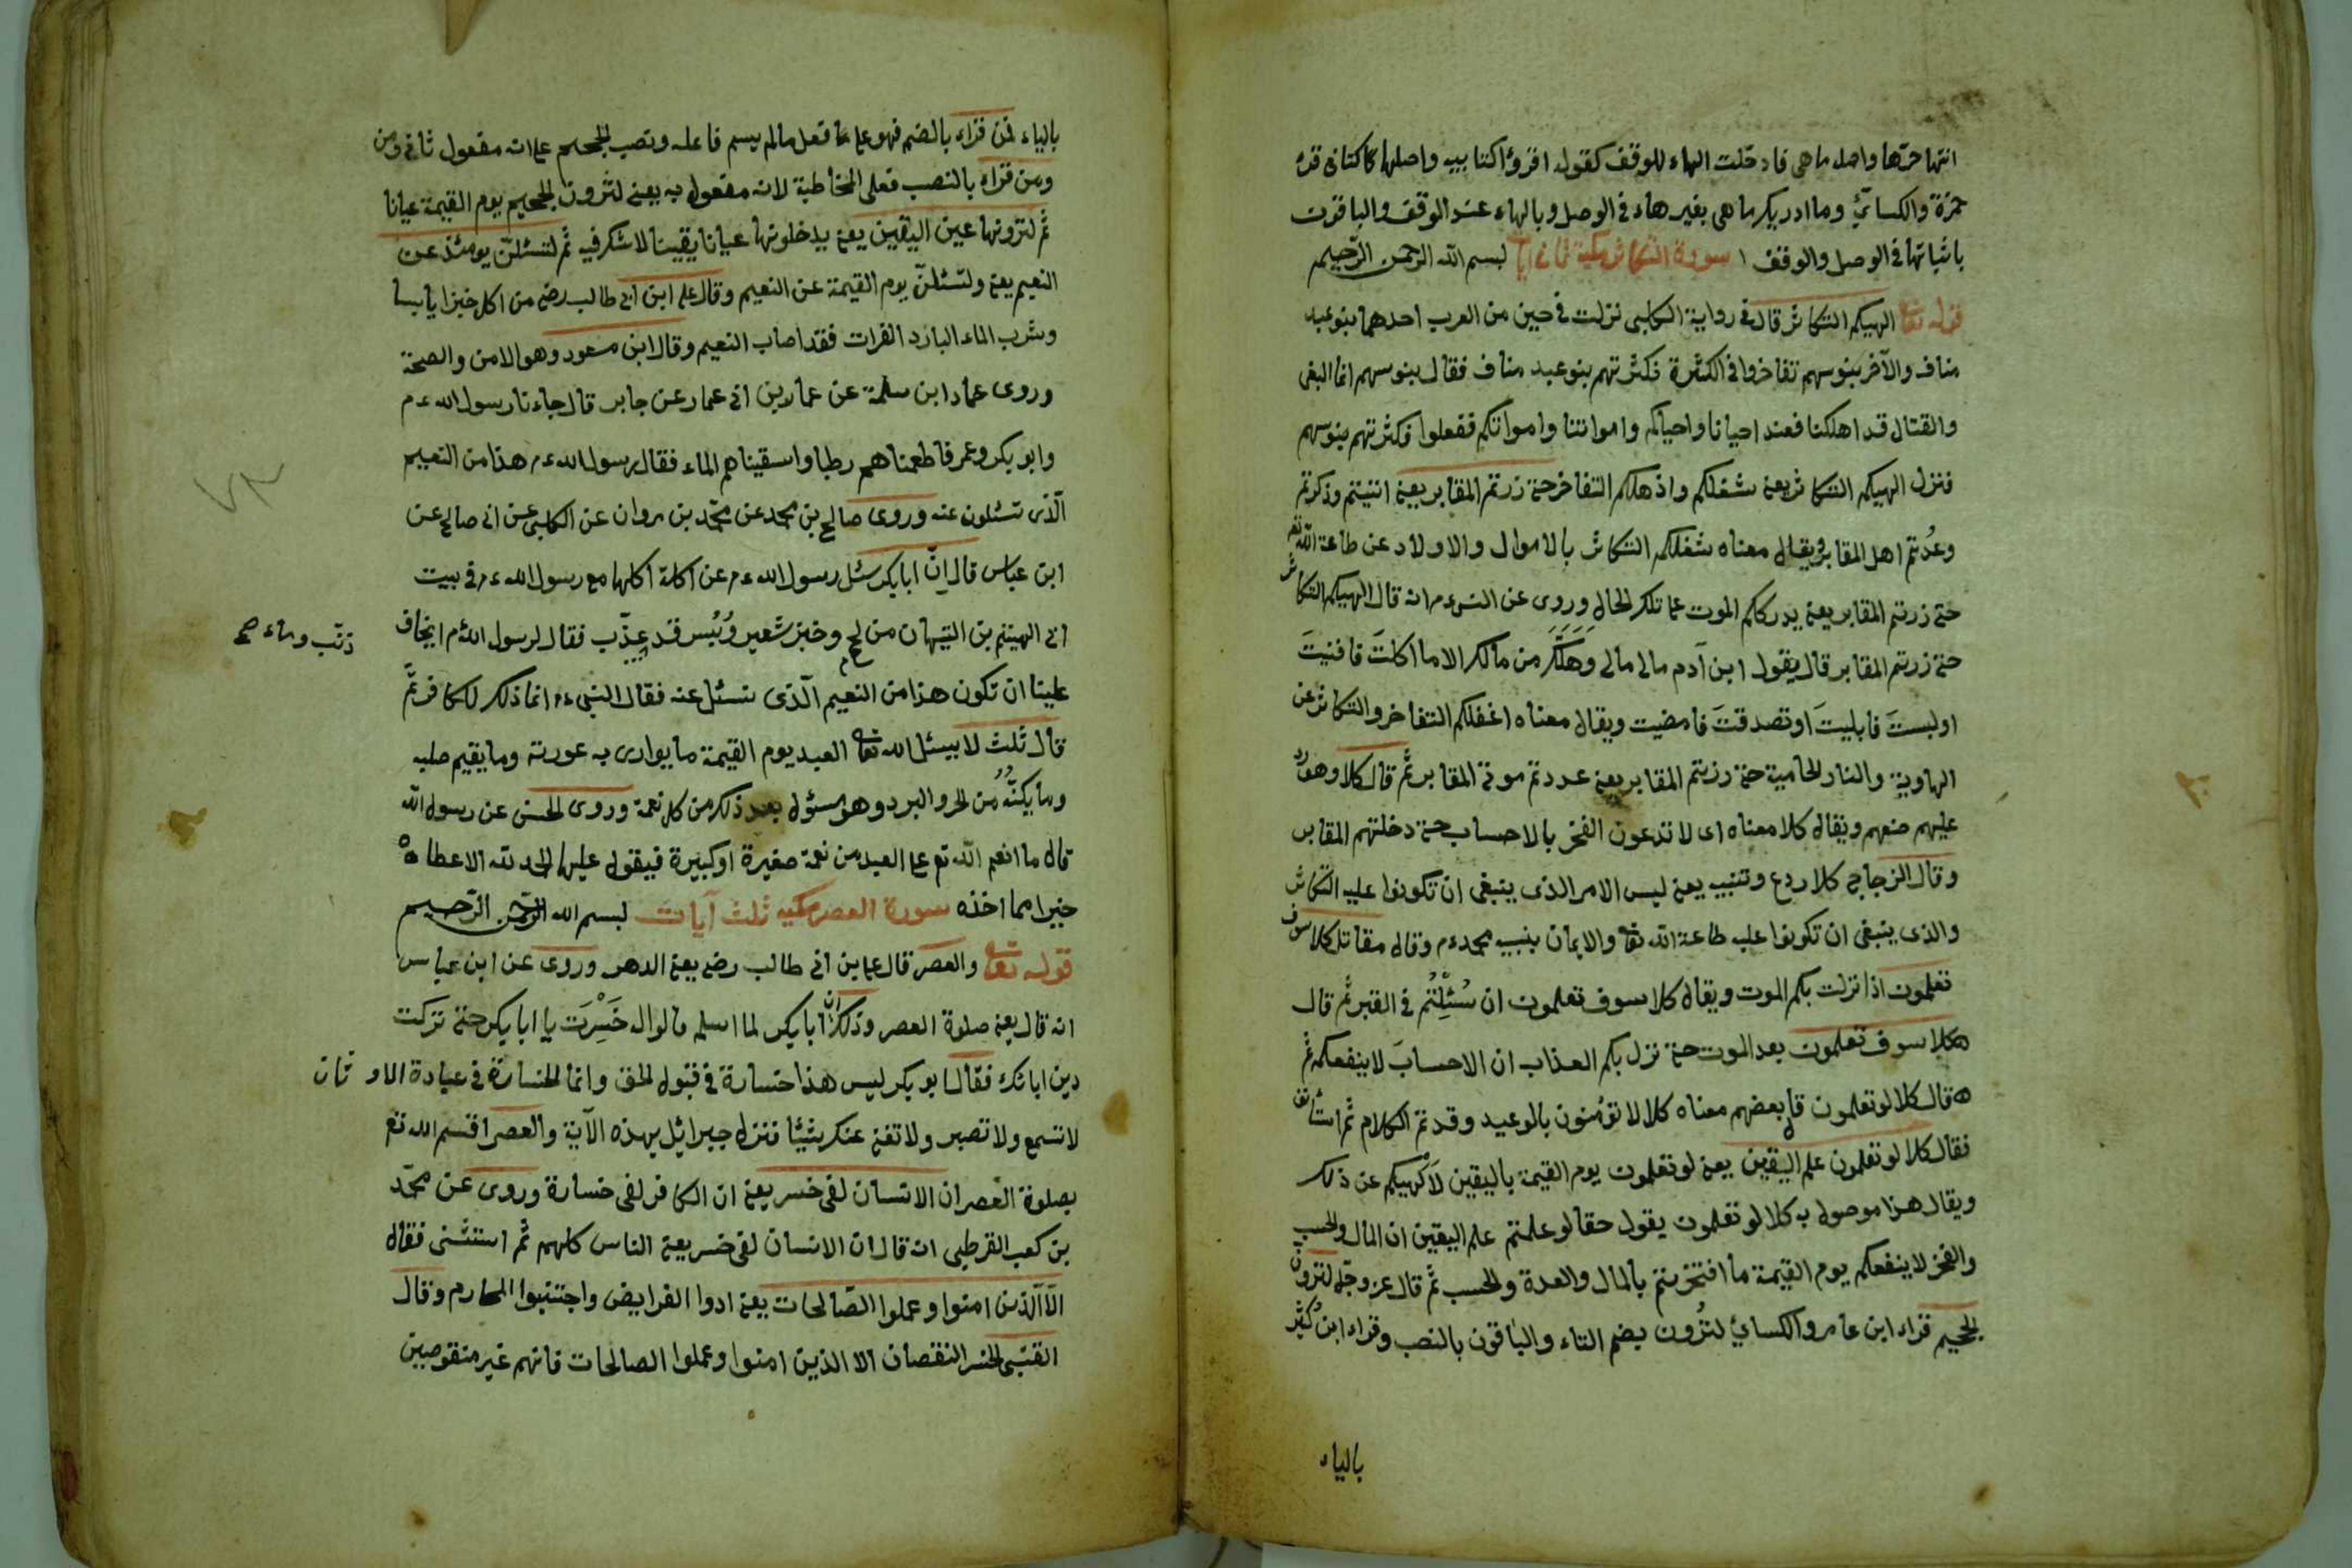 انتها حرّها واصله ماهى فادخلت الهاء للوقف كقوله اقرؤا كتابيه واصلها كتابى قرء
حمزة والكسائىّ وما ادريك ما هى بغير هاء فى الوصل وبالهاء عند الوقف والباقون
باثباتها فى الوصل والوقف سورة التكاثر مكية ثمانى آيات بسم الله الرحمن الرّحيم
قوله تعالى الهيكم التكاثر قال فى رواية الكلبى نزلت فى حيين من العرب احدهما بنو عبد
مناف والآخر بنو سهم تفاخروا فى الكثرة فكثرتهم بنو عبد مناف فقال بنو سهم انما البغى
والقتال قد اهلكنا فعند احيانا واحياكم وامواتنا وامواتكم ففعلوا فكثرتهم بنو سهم
فنزل الهيكم التكاثر يعنى شغلكم واذهلكم التفاخر حتى زرتم المقابر يعنى اتيتم وذكرتم
وعُدتم اهل المقابر ويقال معناه شغلكم التكاثر بالاموال والاولاد عن طاعة الله تع
حتى زرتم المقابر يعنى يدرككم الموت على تلك الحال وروى عن النبى ءم انه قال الهيكم التكاثر
حتى زرتم المقابر قال يقول ابن آدم مالى مالى وهَل لَكَ من مالك الا ما اكلتَ فافنيتَ
او لبستَ فابليتَ او تصدقتَ فامضيت ويقال معناه اغفلكم التفاخر والتكاثر عن
الهاوية والنار الحامية حتى زرتم المقابر يعنى عددتم موتى المقابر ثمّ قال كلا وهو ردّ
عليهم صنعهم ويقال كلا معناه اى لا تدعون الفخر بالاحساب حتى دخلتهم المقابر
وقال الزجاج كلا ردع وتنبيه يعنى ليس الامر الذى ينبغى ان تكونوا عليه التكاثر
والذى ينبغى ان تكونوا عليه طاعة الله تعالى والايمان بنبيه محمد ءم وقال مقاتل كلا سوف
تعلمون اذا نزلت بكم الموت ويقال كلا سوف تعلمون ان سُئِلْتُم فى القبر ثمّ قال
كلا سوف تعلمون بعد الموت حتى نزل بكم العذاب ان الاحسابَ لا ينفعكم ثمّ
قال كلا لو تعلمون قال بعضهم معناه كلا لا تؤمنون بالوعيد وقد تم الكلام ثم استأنف
فقال كلا لو تعلمون علم اليقين يعنى لو تعلمون يوم القيمة باليقين لَاَلْهيكم عن ذلك
ويقال هذا موصول به كلا لو تعلمون يقول حقا لو علمتم علم اليقين ان المال والحسب
والفخر لا ينفعكم يوم القيمة ما افتخرتم بالمال والعدة والحسب ثمّ قال عز وجل لترون
الجحيم قراء ابن عامر والكسائىّ لتُرون بضم التاء والباقون بالنصب وقراء ابن كثير
بالياء
بالياء فمن قراء بالضم فهو على ما فعل مالم يسم فاعله ونصب الجحيم على انه مفعول ثانى ومن
ومن قراء بالنصب فعلى المخاطبة لانه مفعول به يعنى لترون الجحيم يوم القيمة عيانا
ثمّ لترونها عين اليقين يعنى يدخلونها عيانا يقينا لا شك فيه ثمّ لتسئلنّ يومئذ عن
النعيم يعنى ولتسئلنّ يوم القيمة عن النعيم وقال على ابن ابى طالب رضى من اكل خبزا يابسا
وشرب الماء البارد الفرات فقد اصاب النعيم وقال ابن مسعود وهو الامن والصحة
وروى حماد ابن سلمة عن عمار بن ابى عمار عن جابر قال جاءنا رسول الله ءم
وابو بكر وعمر فاطعمناهم رطبا واسقيناهم الماء فقال رسول الله ءم هذا من النعيم
الّذى تسئلون عنه وروى صالح بن محمد عن محمّد بن مروان عن الكلبى عن ابى صالح عن
ابن عباس قال اِنّ ابا بكر سئل رسول الله ءم عن اكلة اكلها مع رسول الله ءم فى بيت
ابى الهيثم بن التيهان من لحم وخبز شعير وَبُسر قد عذّب فقال لرسول الله ءم ايخاف
ذنّب وماء صح
علينا ان تكون هذا من النعيم الّذى نسئل عنه فقال النبى ءم انما ذلك للكافر ثمّ
قال ثلث لا يسئل الله تعالى العبد يوم القيمة ما يوارى به عورته وما يقيم صلبه
وما يكنّهُ من الحر والبرد وهو مسئول بعد ذلك من كل نعمة وروى الحسن عن رسول الله
قال ما انعم الله تع على العبد من نعمة صغيرة او كبيرة فيقول عليها الحمد لله الا عطاه
خيرا مما اخذه سورة العصر مكيه ثلث آيات بسم الله الرحمن الرّحيم
قوله تعالى والعصر قال على بن ابى طالب رضى يعنى الدهر وروى عن ابن عباس
انه قال يعنى صلوة العصر وذلك انّ ابا بكر لما اسلم قالوا له خَسِرْتَ يا ابا بكر حتى تركت
دين ابائك فقال ابو بكر ليس هذا خسارة فى قبول الحق وانما الخسارة فى عبادة الاوثان
لا تسمع ولا تصبر ولا تغنى عنك شيئا فنزل جبرائيل بهذه الآية والعصر اقسم الله تع
بصلوة العصر ان الانسان لفى خسر يعنى ان الكافر لفى خسارة وروى عن محمّد
بن كعب القرطبى انه قال ان الانسان لفى خسر يعنى الناس كلهم ثمّ استثنى فقال
الّا الّذين امنوا وعملوا الصّالحات يعنى ادوا الفرايض واجتنبوا المحارم وقال
القتبى الخسر النقصان الا الذين امنوا وعملوا الصالحات فانهم غير منقوصين